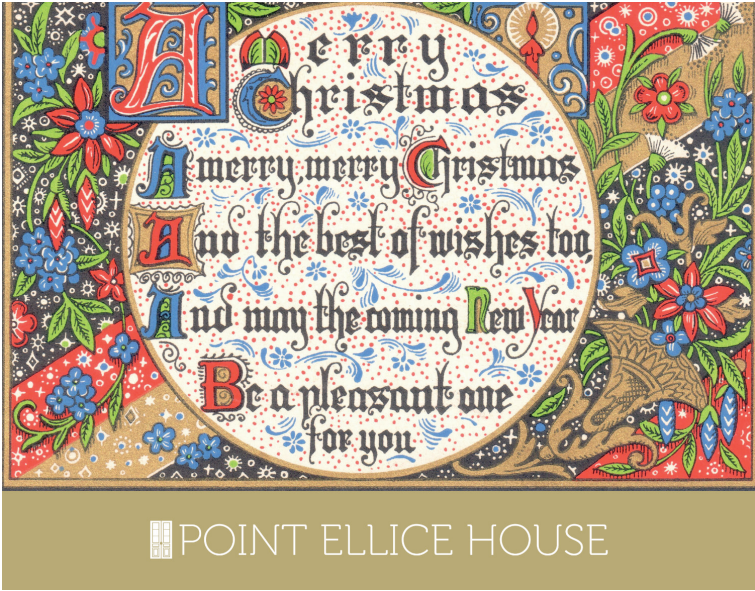 A
Merry
Christmas
A merry, merry Christmas
And the best of wishes too,
And may the coming New Year
Be a pleasant one
for you
POINT ELLICE HOUSE